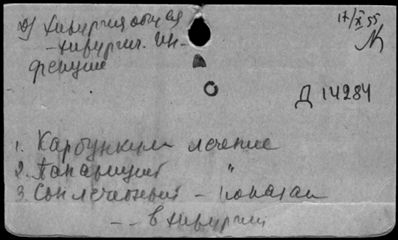 д) Хирургия общая
17/X 55
- Хирургич. ин-
фекции
Д 14284
1. Карбункул лечение
2. Панариций "
3. Сон лечебный - показан
- - в хирургии